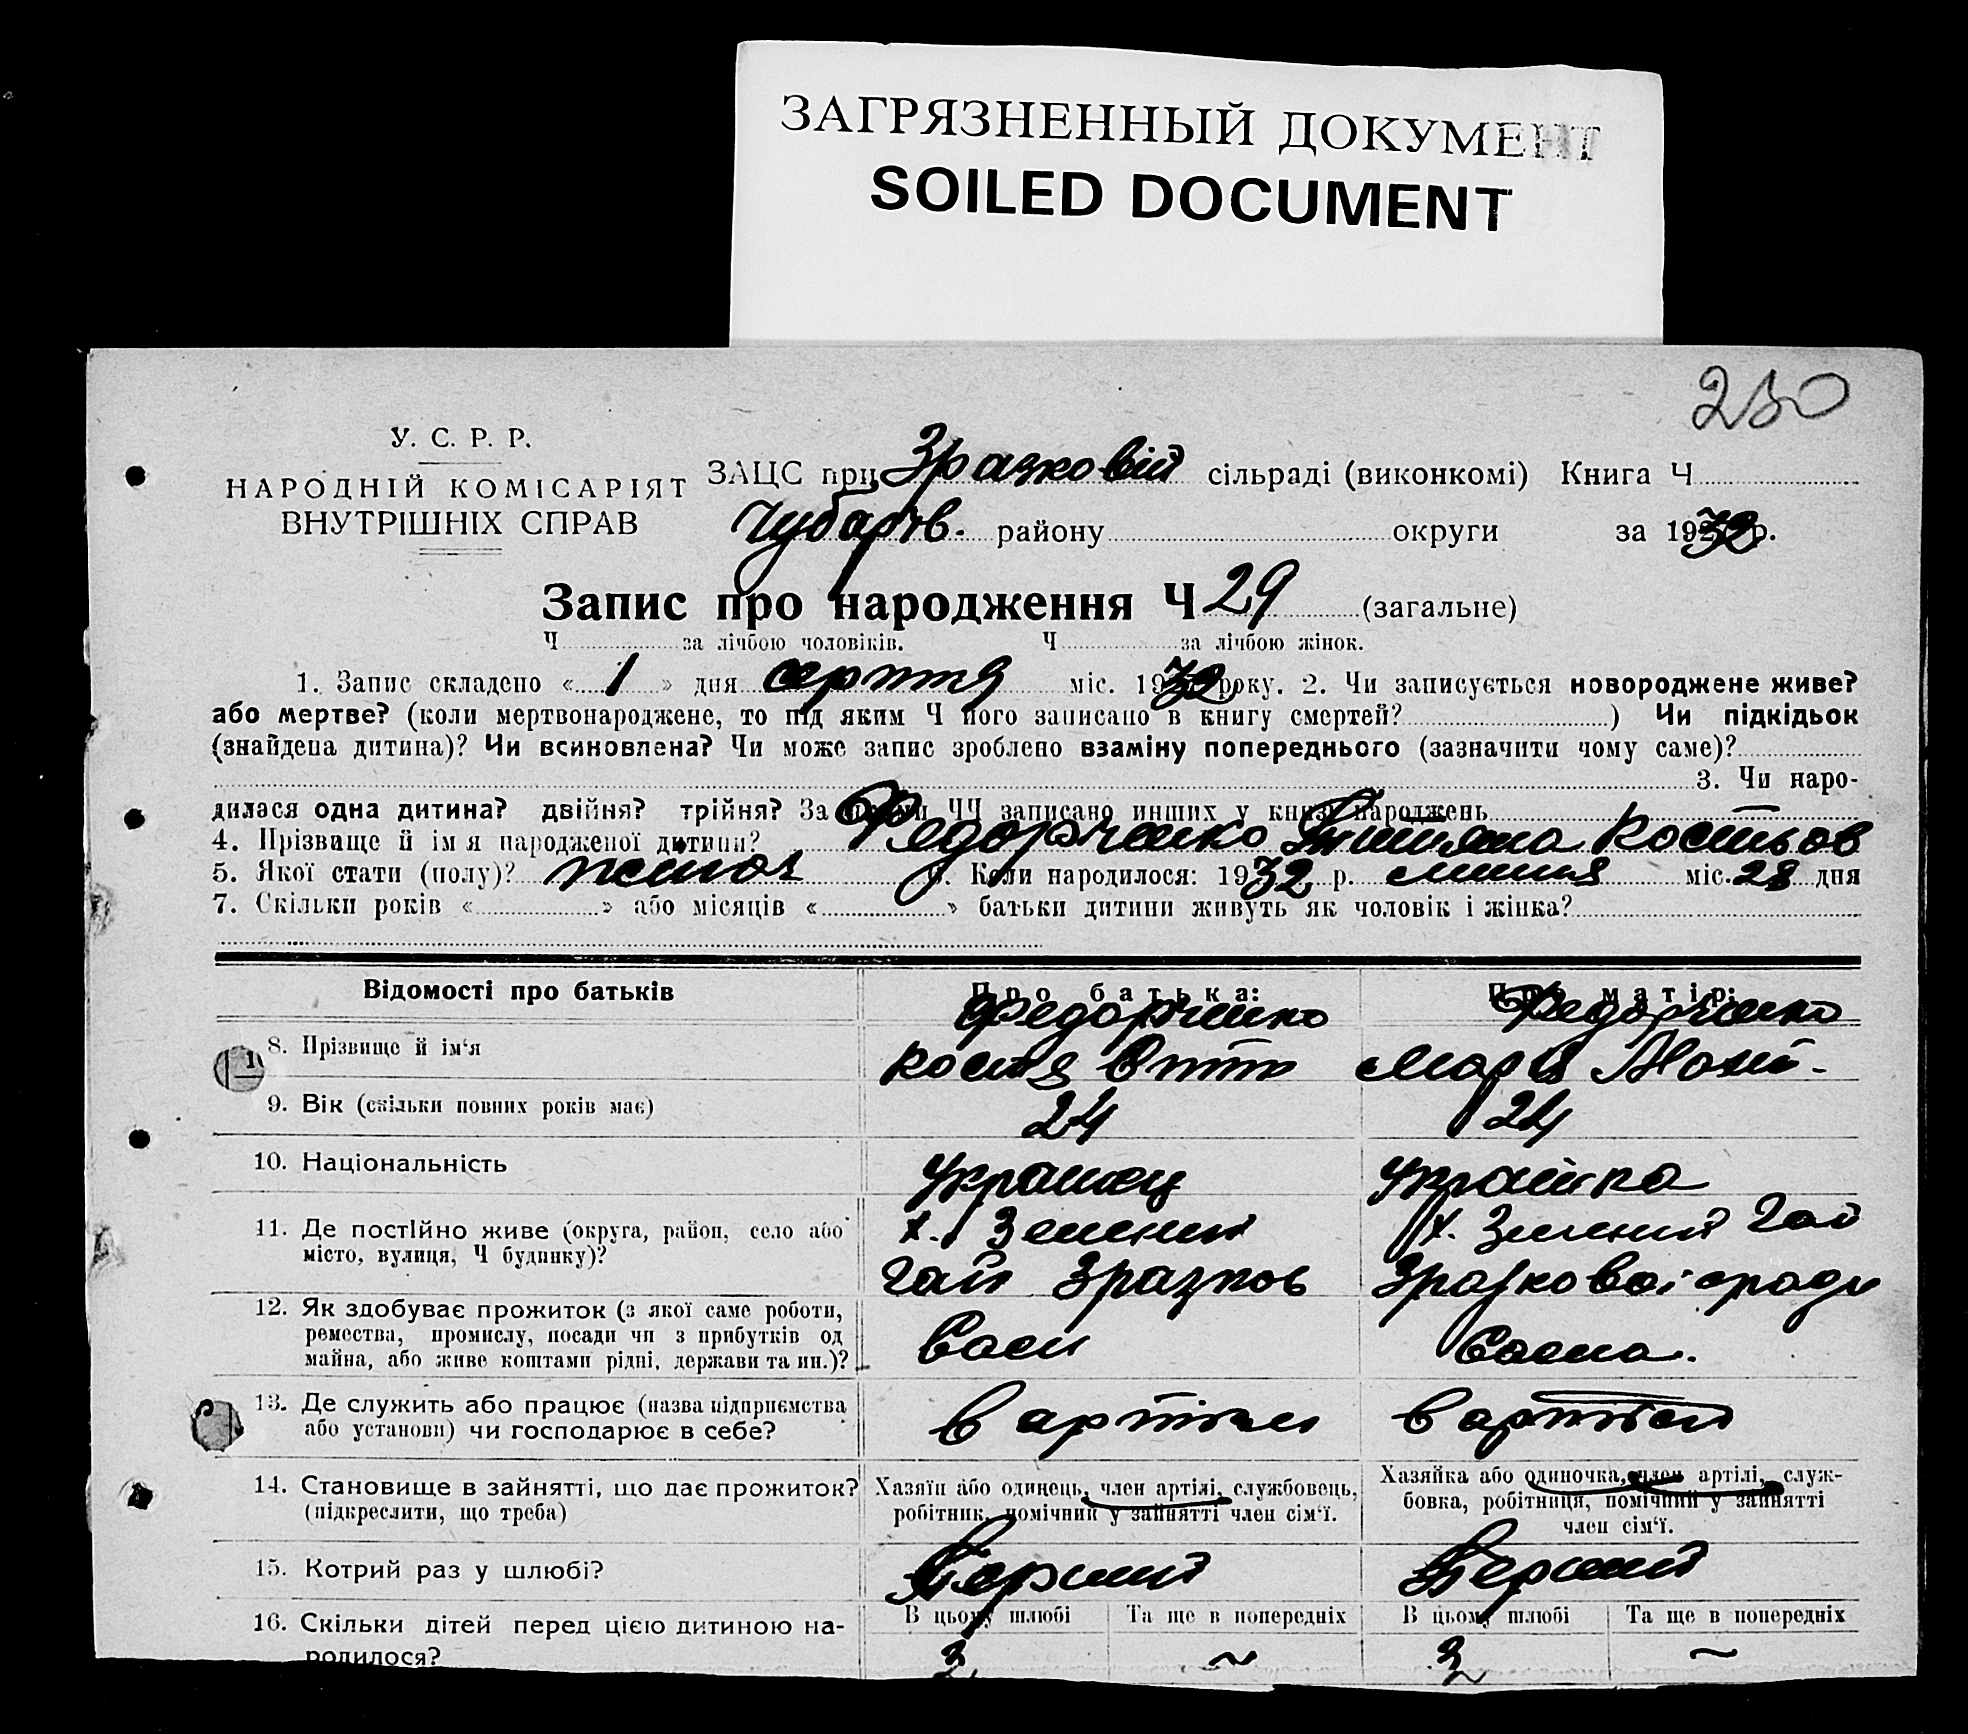 ЗАГРЯЗНЕННЫЙ ДОКУМЕНТ
SOILED DOCUMENT
230
У. С. Р. Р.
НАРОДНІЙ КОМІСАРІЯТ
ВНУТРІШНІХ СПРАВ
ЗАЦС при Зразковій сільраді (виконкомі) Книга Ч
Чубарів. району округи за 1932 р.
Запис про народження Ч 29 (загальне)
Ч за лічбою чоловіків. Ч за лічбою жінок.
1. Запис складено « 1 » дня серпня міс. 1932 року. 2. Чи записується новороджене живе?
або мертве? (коли мертвонароджене, то під яким Ч його записано в книгу смертей? ) Чи підкідьок
(знайдена дитина)? Чи всиновлена? Чи може запис зроблено взаміну попереднього (зазначити чому саме)?
3. Чи наро-
дилася одна дитина? двійня? трійня? За якими ЧЧ записано инших у книзі народжень
4. Прізвище й ім я народженої дитини? Федорченко Тетяна Костьов
5. Якої стати (полу)? жіноч 6. Коли народилося: 1932 р. липня міс. 28 дня
7. Скільки років « » або місяців « » батьки дитини живуть як чоловік і жінка?
Відомості про батьків Про батька: Про матір:
8. Прізвище й ім‘я Федорченко Костя Федорченко Марія
9. Вік (скільки повних років має) 24 24
10. Національність Українец Українка
11. Де постійно живе (округа, район, село або місто, вулиця, Ч будинку)? х. Зелений Гай Зразков х. Зелений Гай Зразкової сради
12. Як здобуває прожиток (з якої саме роботи, ремества, промислу, посади чи з прибутків од майна, або живе коштами рідні, держави та ин.)?
13. Де служить або працює (назва підприємства або установи) чи господарює в себе? в артілі в артілі
14. Становище в зайнятті, що дає прожиток? (підкреслити, що треба) Хазяїн або одинець, член артілі, службовець, робітник, помічний у зайнятті член сім‘ї. Хазяйка або одиночка, член артілі, служ-бовка, робітниця, помічний у зайнятті член сім‘ї.
15. Котрий раз у шлюбі? Перший Перший
16. Скільки дітей перед цією дитиною на-родилося? В цьому шлюбі Та ще в попередніх В цьому шлюбі Та ще в попередніх
3 ~ 3 ~